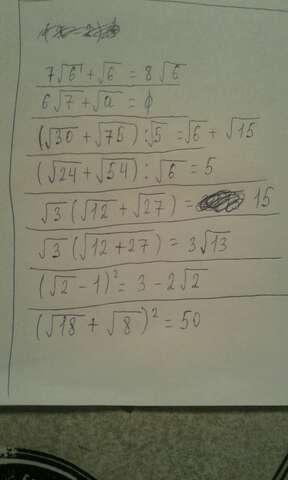 7√6 + √6 = 8√6
6√7 + √a = ϕ
(√30 + √75) : √5 = √6 + √15
(√24 + √54) : √6 = 5
√3 (√12 + √27) = 15
√3 (√12+27) = 3√13
(√2 - 1)² = 3 - 2√2
(√18 + √8)² = 50